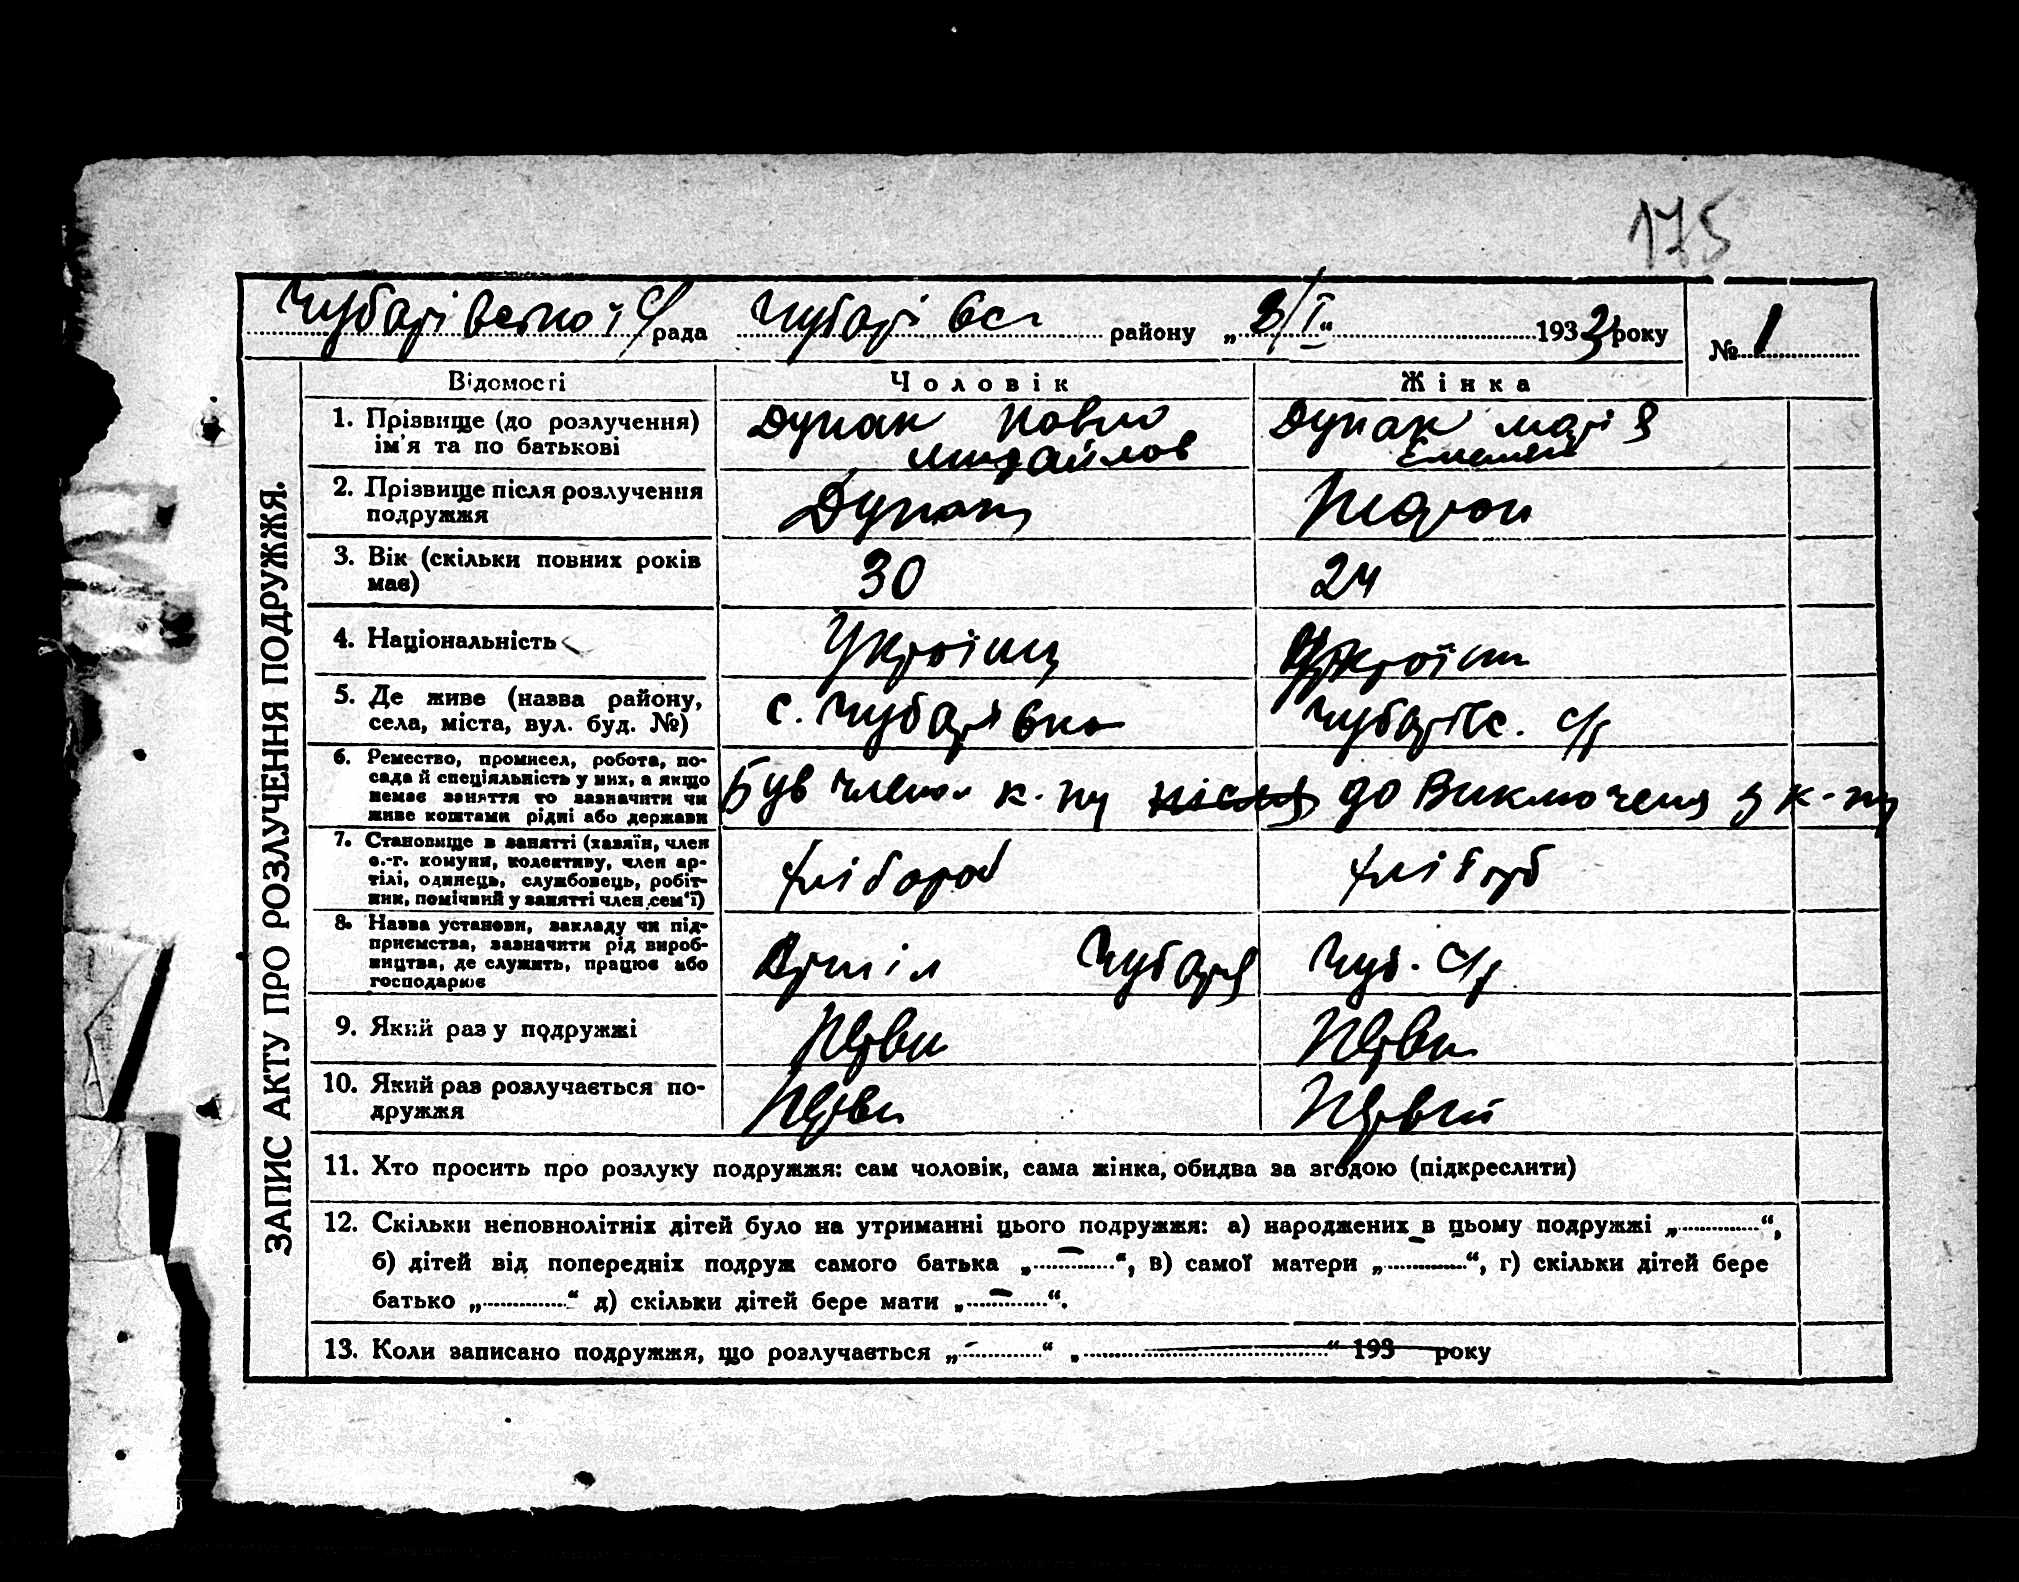 175
Чубарівської с/рада Чубарівськ району „3/I“ 1933 року № 1
ЗАПИС АКТУ ПРО РОЗЛУЧЕННЯ ПОДРУЖЖЯ.
Відомості Чоловік Жінка
1. Прізвище (до розлучення) Дупак Павло Дупак Марія
ім'я та по батькові Михайлов
2. Прізвище після розлучення Дупак
подружжя
3. Вік (скільки повних років 30 24
має)
4. Національність Україец Україн
5. Де живе (назва району, с. Чубарівка Чубарівс. с/р
села, міста, вул. буд. №)
6. Ремество, промисел, робота, по-
сада й спеціяльність у них, а якщо Був членом к-пу після до Виключеня з к-пу
немає заняття то зазначити чи
живе коштами рідні або держави
7. Становище в занятті (хазяїн, член
с.-г. комуни, колективу, член ар- хлібороб хлібороб
тілі, одинець, службовець, робіт-
ник, помічний у занятті член сем'ї)
8. Назва установи, закладу чи під-
приємства, зазначити рід вироб- Артіл Чубаря Чуб. с/р
ництва, де служить, працює або
господарює
9. Який раз у подружжі Перви Перви
10. Який раз розлучається по- Перви Первий
дружжя
11. Хто просить про розлуку подружжя: сам чоловік, сама жінка, обидва за згодою (підкреслити)
12. Скільки неповнолітніх дітей було на утриманні цього подружжя: а) народжених в цьому подружжі „............“,
б) дітей від попередніх подруж самого батька „.....–.....“, в) самої матери „.....–.....“, г) скільки дітей бере
батько „............“ д) скільки дітей бере мати „.....–.....“.
13. Коли записано подружжя, що розлучається „.....–.....“ „............“ 193 року